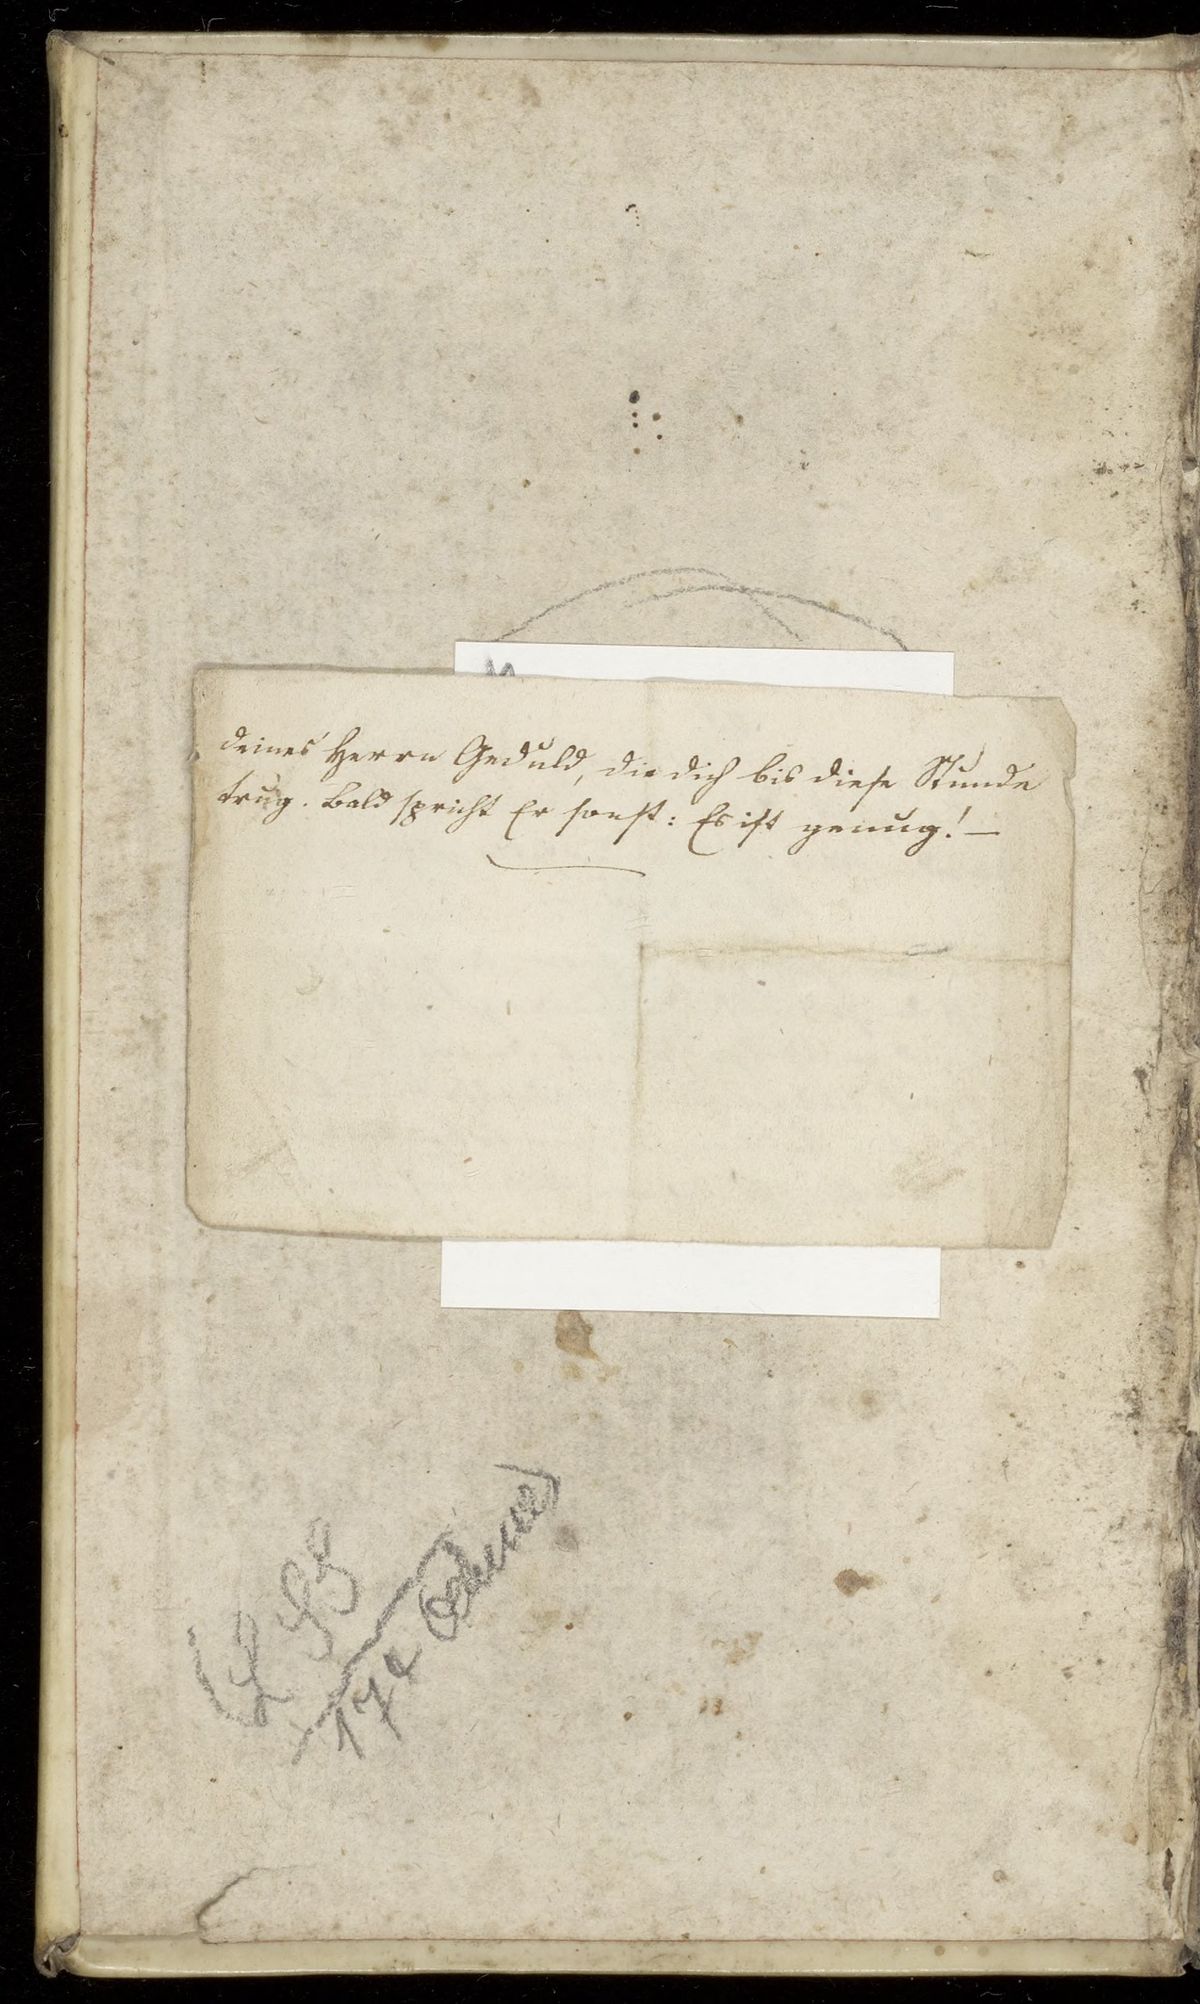 deines Herrn Geduld, die dich bis diese Stunde
trug. Bald spricht Er sanft: Es ist genug! —
174